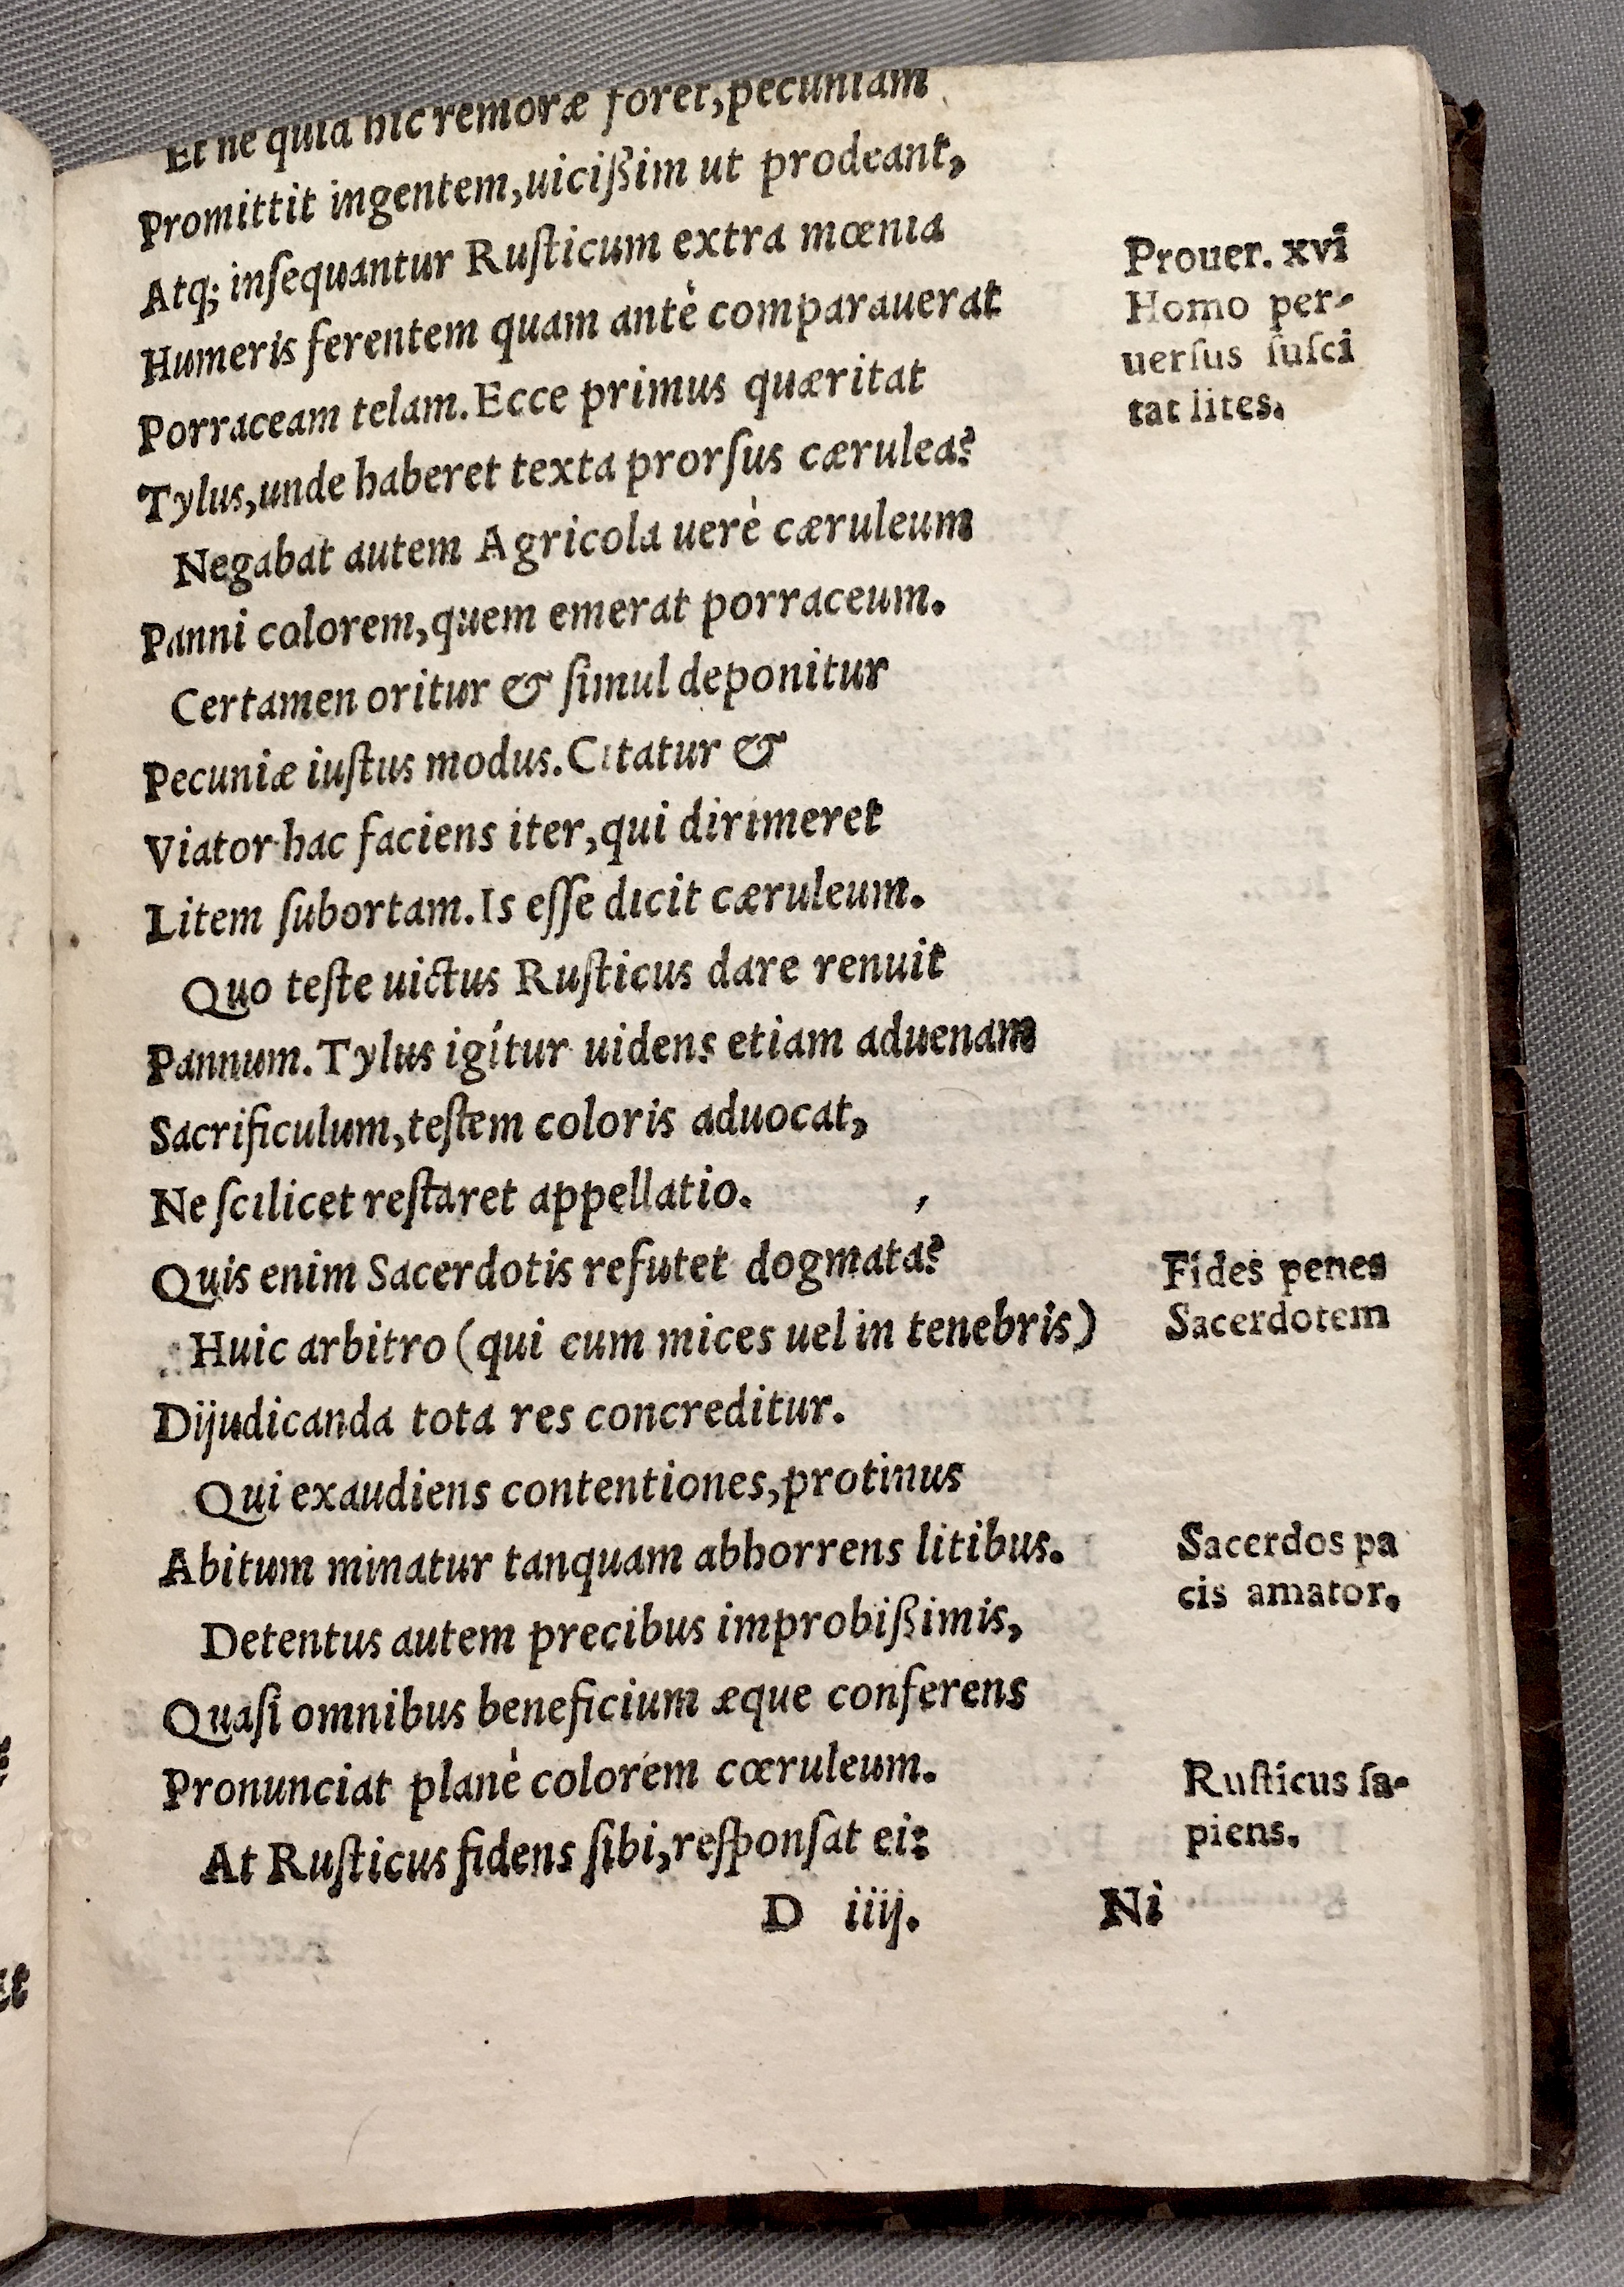 Et ne quid hic remoræ foret,pecuniam
Promittit ingentem,uicißim ut prodeant,
Atq; inſequantur Ruſticum extra mœnia
Humeris ferentem quam antè comparauerat
Porraceam telam.Ecce primus quæritat
Tylus,unde haberet texta prorſus cærulea?
Negabat autem Agricola uerè cæruleum
Panni colorem,quem emerat porraceum.
Certamen oritur & ſimul deponitur
Pecuniæ iuſtus modus.Citatur &
Viator hac faciens iter,qui dirimeret
Litem ſubortam.Is eſſe dicit cæruleum.
Quo teſte uictus Ruſticus dare renuit
Pannum.Tylus igitur uidens etiam aduenam
Sacrificulum,teſtem coloris aduocat,
Ne ſcilicet reſtaret appellatio.
Quis enim Sacerdotis refutet dogmata?
Huic arbitro (qui cum mices uel in tenebris)
Dijudicanda tota res concreditur.
Qui exaudiens contentiones,protinus
Abitum minatur tanquam abhorrens litibus.
Detentus autem precibus improbißimis,
Quaſi omnibus beneficium æque conferens
Pronunciat planè colorem cœruleum.
At Ruſticus fidens ſibi,reſponſat ei:
D iiij.
Ni
Prouer. xvi
Homo per-
uerſus ſuſci
tat lites.
Fides penes
Sacerdotem
Sacerdos pa
cis amator.
Ruſticus ſa-
piens.